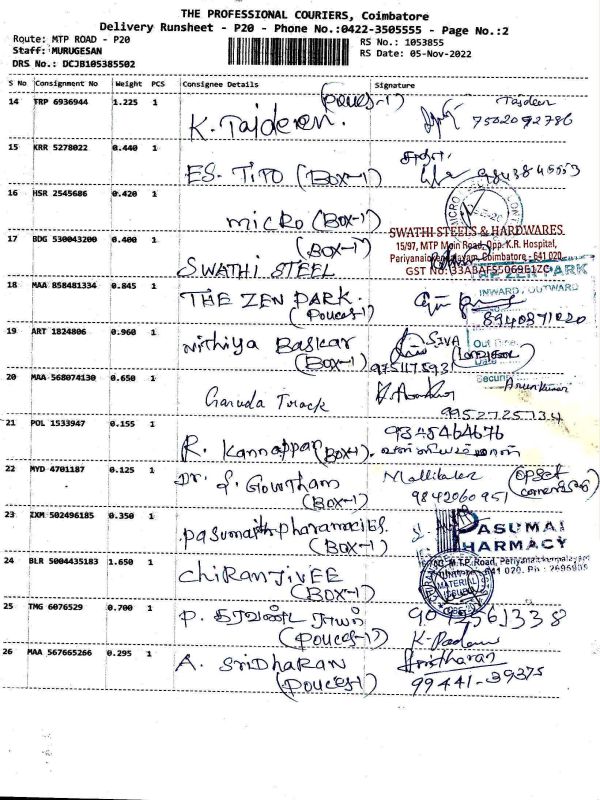 THE PROFESSIONAL COURIERS, Coimbatore
Delivery Runsheet - P20 - Phone No.:0422-3505555 - Page No.:2
Route: MTP ROAD - P20
Staff: MURUGESAN
DRS No.: DCJB105385502
RS No.: 1053855
RS Date: 05-Nov-2022
S No Consignment No Weight PCS Consignee Details Signature
14 TRP 6936944 1.225 1 K. Tajdeen. (Pouces-1) Tajdeen
7502092786
15 KRR 5278022 0.440 1
ES. TIPO (BOX-1)
16 HSR 2545686 0.420 1
micro (BOX-1)
17 BDG 530043200 0.400 1 (BOX-1)
SWATHI STEEL
SWATHI STEELS & HARDWARES
15/97, MTP Main Road, Opp. K.R. Hospital,
Coimbatore - 641 020
GST No: 33ABAFS5069E1ZC
18 MAA 858481334 0.845 1 THE ZEN PARK.
(Pouces-1)
ZEN PARK
INWARD / OUTWARD
8940371020
19 ART 1824806 0.960 1 Nithiya Baskar
(BOX-1)
SIVA
9751175931
Out Time
Date
20 MAA 568074130 0.650 1
Garuda Track
Security
Arunkumar
9952725734
21 POL 1533947 0.155 1
R. Kannappan (BOX-1).
9345464676
22 MYD 4701187 0.125 1 Dr. S. Gowtham
(BOX-1)
9842060951
23 ZXM 502496185 0.350 1
(BOX-1)
PASUMAI
PHARMACY
M.T.P. Road, Periyanaickenpalayam
24 BLR 5004435183 1.650 1
ChiRANJIVEE
(BOX-1)
MATERIAL
25 TMG 6076529 0.700 1
(Pouces-1)
26 MAA 567665266 0.295 1 A. SRIDHARAN
(Pouces-1)
99441-39375